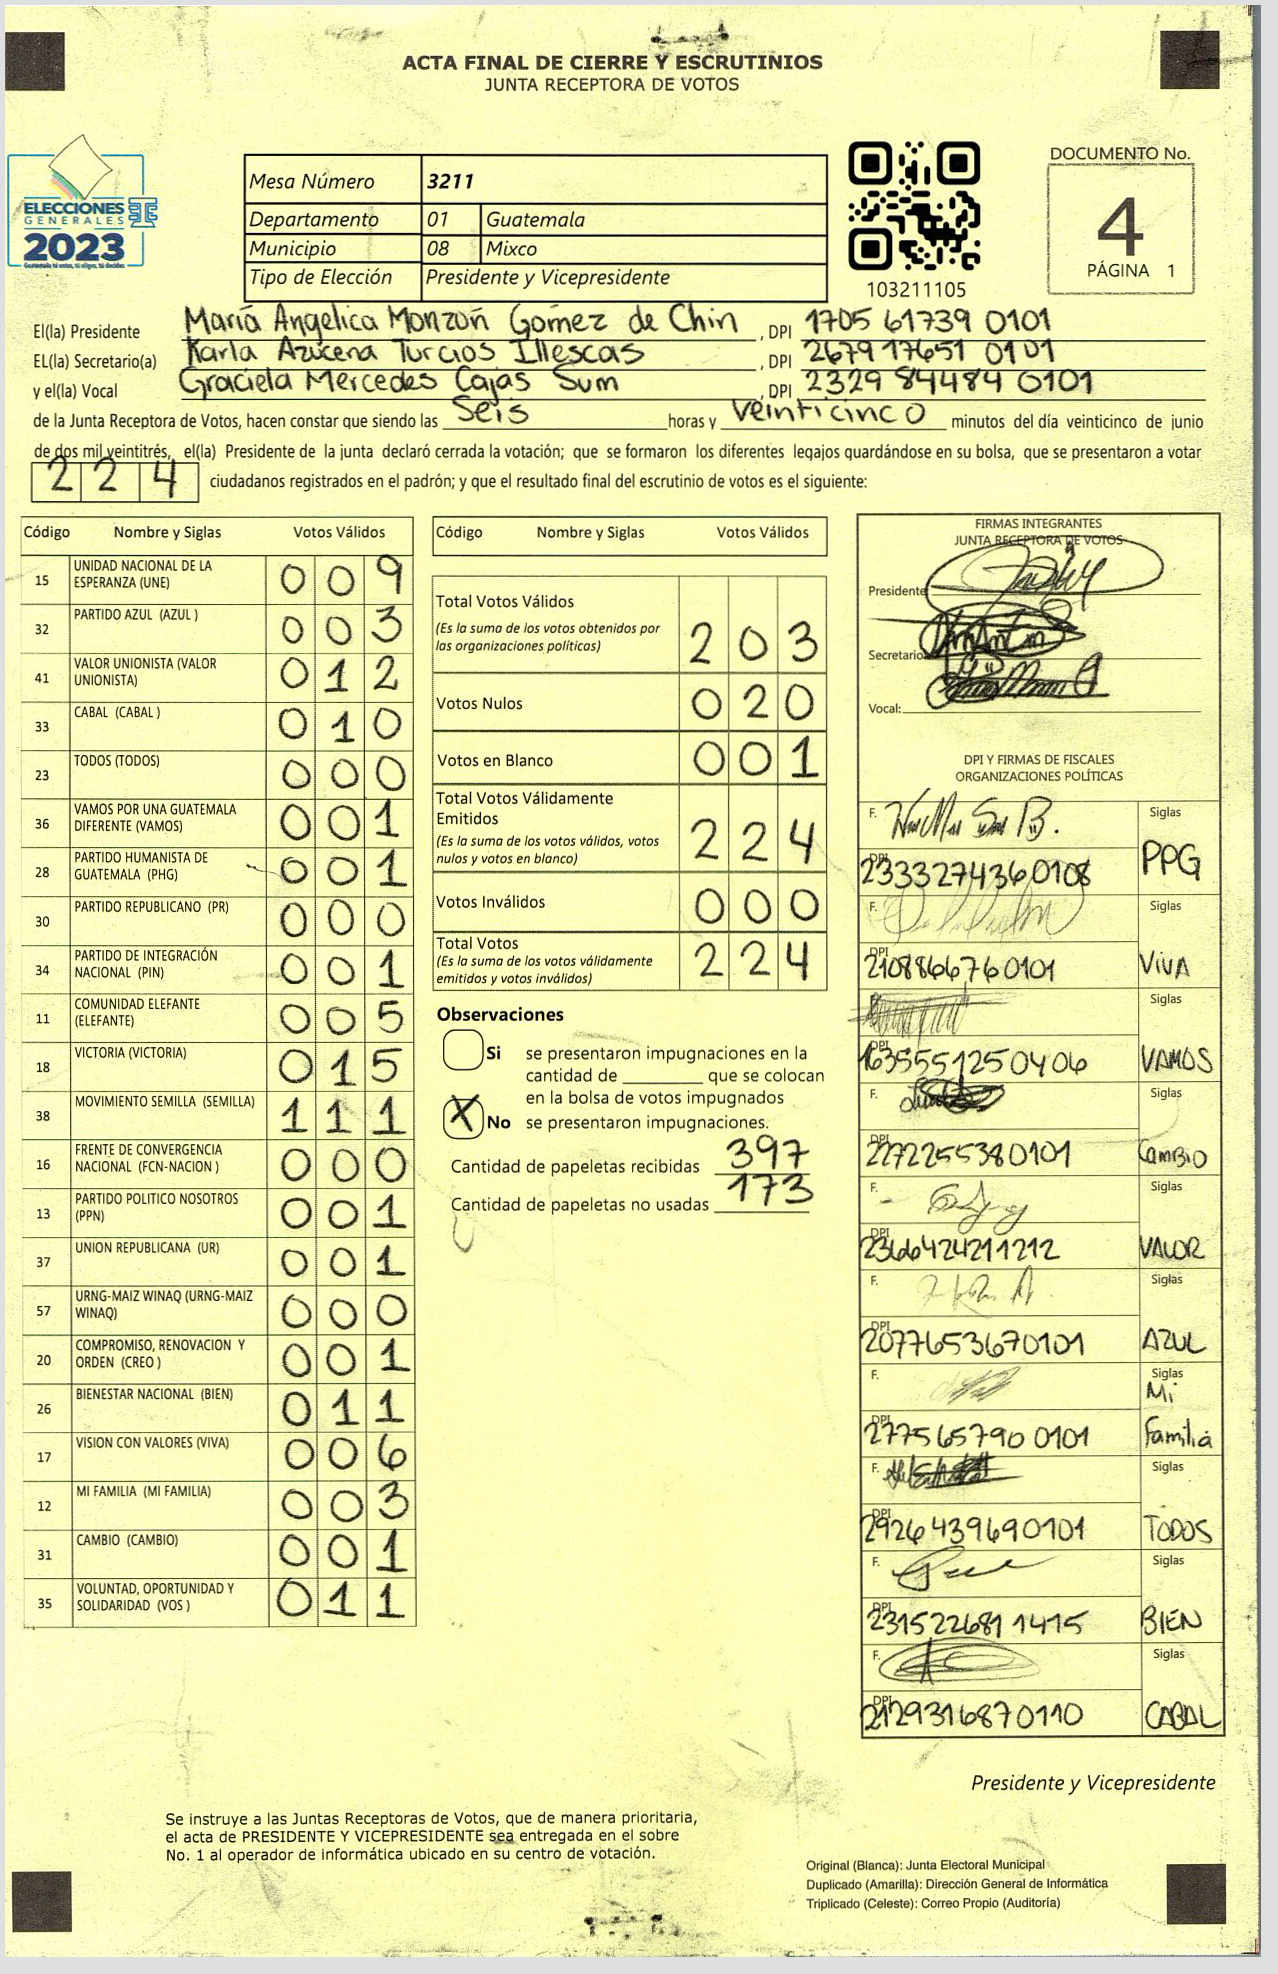 ACTA FINAL DE CIERRE Y ESCRUTINIOS
JUNTA RECEPTORA DE VOTOS
ELECCIONES
GENERALES
2023
Mesa Número 3211
Departamento 01 Guatemala
Municipio 08 Mixco
Tipo de Elección Presidente y Vicepresidente
103211105
DOCUMENTO No.
4
PÁGINA 1
El(la) Presidente María Angelica Monzoñ Gómez de Chin , DPI 1705 61739 0101
EL(la) Secretario(a) Karla Azucena Turcios Illescas , DPI 2679 17651 0101
y el(la) Vocal Graciela Mercedes Cajas Sum , DPI 2329 84484 0101
de la Junta Receptora de Votos, hacen constar que siendo las Seis horas y veinticinco minutos del día veinticinco de junio
de dos mil veintitrés, el(la) Presidente de la junta declaró cerrada la votación; que se formaron los diferentes legajos guardándose en su bolsa, que se presentaron a votar
224 ciudadanos registrados en el padrón; y que el resultado final del escrutinio de votos es el siguiente:
Código Nombre y Siglas Votos Válidos
15 UNIDAD NACIONAL DE LA
ESPERANZA (UNE) 009
32 PARTIDO AZUL (AZUL ) 003
41 VALOR UNIONISTA (VALOR
UNIONISTA) 012
33 CABAL (CABAL ) 010
23 TODOS (TODOS) 000
36 VAMOS POR UNA GUATEMALA
DIFERENTE (VAMOS) 001
28 PARTIDO HUMANISTA DE
GUATEMALA (PHG) 001
30 PARTIDO REPUBLICANO (PR) 000
34 PARTIDO DE INTEGRACIÓN
NACIONAL (PIN) 001
11 COMUNIDAD ELEFANTE
(ELEFANTE) 005
18 VICTORIA (VICTORIA) 015
38 MOVIMIENTO SEMILLA (SEMILLA) 111
16 FRENTE DE CONVERGENCIA
NACIONAL (FCN-NACION ) 000
13 PARTIDO POLITICO NOSOTROS
(PPN) 001
37 UNION REPUBLICANA (UR) 001
57 URNG-MAIZ WINAQ (URNG-MAIZ
WINAQ) 000
20 COMPROMISO, RENOVACION Y
ORDEN (CREO ) 001
26 BIENESTAR NACIONAL (BIEN) 011
17 VISION CON VALORES (VIVA) 006
12 MI FAMILIA (MI FAMILIA) 003
31 CAMBIO (CAMBIO) 001
35 VOLUNTAD, OPORTUNIDAD Y
SOLIDARIDAD (VOS ) 011
Código Nombre y Siglas Votos Válidos
Total Votos Válidos
(Es la suma de los votos obtenidos por
las organizaciones políticas) 203
Votos Nulos 020
Votos en Blanco 001
Total Votos Válidamente
Emitidos
(Es la suma de los votos válidos, votos
nulos y votos en blanco) 224
Votos Inválidos 000
Total Votos
(Es la suma de los votos válidamente
emitidos y votos inválidos) 224
Observaciones
Si se presentaron impugnaciones en la
cantidad de ________ que se colocan
en la bolsa de votos impugnados
X No se presentaron impugnaciones.
Cantidad de papeletas recibidas 397
Cantidad de papeletas no usadas 173
FIRMAS INTEGRANTES
JUNTA RECEPTORA DE VOTOS
Presidente
Secretario
Vocal:
DPI Y FIRMAS DE FISCALES
ORGANIZACIONES POLÍTICAS
F. Siglas
DPI 2333274360108 PPG
F. Siglas
DPI 2108866760101 VIVA
Siglas
DPI 1635551250406 VAMOS
F. Siglas
DPI 2272255380101 Cambio
F. Siglas
DPI 2366424211212 VALOR
F. Siglas
DPI 2077653670101 AZUL
F. Siglas
Mi
DPI 277565790 0101 Familia
F. Siglas
DPI 2926439690101 TODOS
F. Siglas
DPI 231522681 1415 BIEN
F. Siglas
DPI 2129316870110 CABAL
Presidente y Vicepresidente
Se instruye a las Juntas Receptoras de Votos, que de manera prioritaria,
el acta de PRESIDENTE Y VICEPRESIDENTE sea entregada en el sobre
No. 1 al operador de informática ubicado en su centro de votación.
Original (Blanca): Junta Electoral Municipal
Duplicado (Amarilla): Dirección General de Informática
Triplicado (Celeste): Correo Propio (Auditoría)